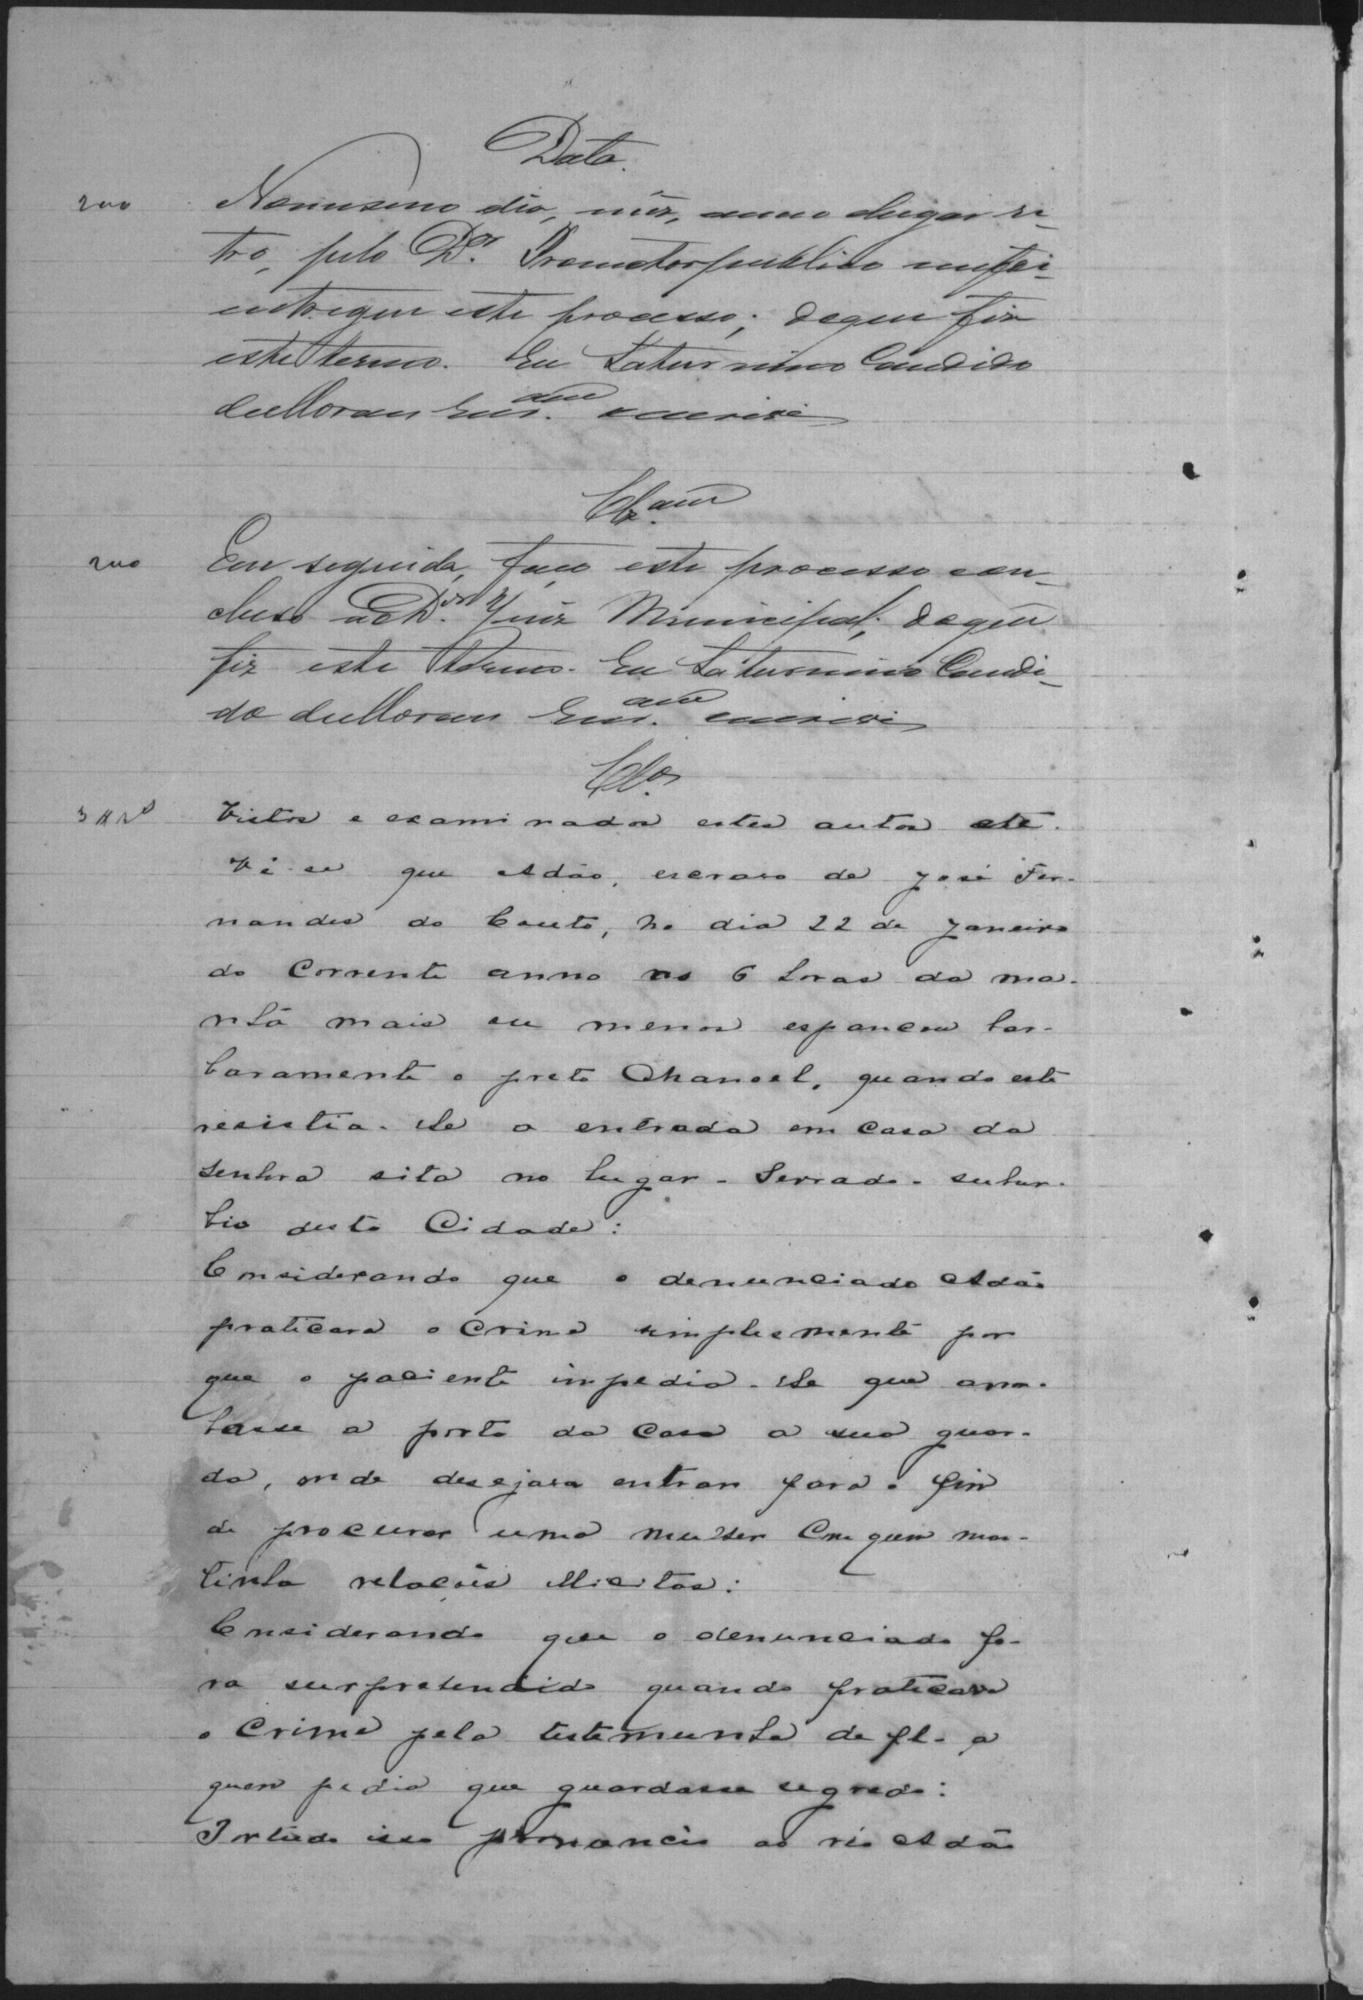 Data.
200 No mesmo dia, mez, anno e lugar re-
tro, pelo Dr. Promotor publico me foi
entregue este processo; do que fiz
este termo. Eu Saturnino Candido
de Moraes Escram escrivi
Clzam
200 Em seguida, faço este processo con-
cluso ao Dr. Juiz Municipal; do que
fiz este termo. Eu Saturnino Candi-
do de Moraes Escram escrivi
Clos
Vistos e examinados estes autos etc.
Vê-se que Adão, escravo de José Fer-
nandes do Couto, no dia 22 de Janeiro
do corrente anno as 6 horas da ma-
nhã mais ou menos espancou bar-
baramente o preto Manoel, quando este
resistia-lhe a entrada em casa da
senhora sita no lugar - Serrado - subur-
bio desta Cidade:
Considerando que o denunciado Adão
praticara o crime simplesmente por
que o paciente impedia-lhe que arrom-
basse a porta da casa a sua guar-
da, onde desejava entrar para o fim
de procurar uma mulher com quem man-
tinha relações illicitas:
Considerando que o denunciado fo-
ra surprehendido quando praticava
o crime pela testemunha de fl. a
quem pedio que guardasse segredo:
Por tudo isso pronuncio ao réo Adão